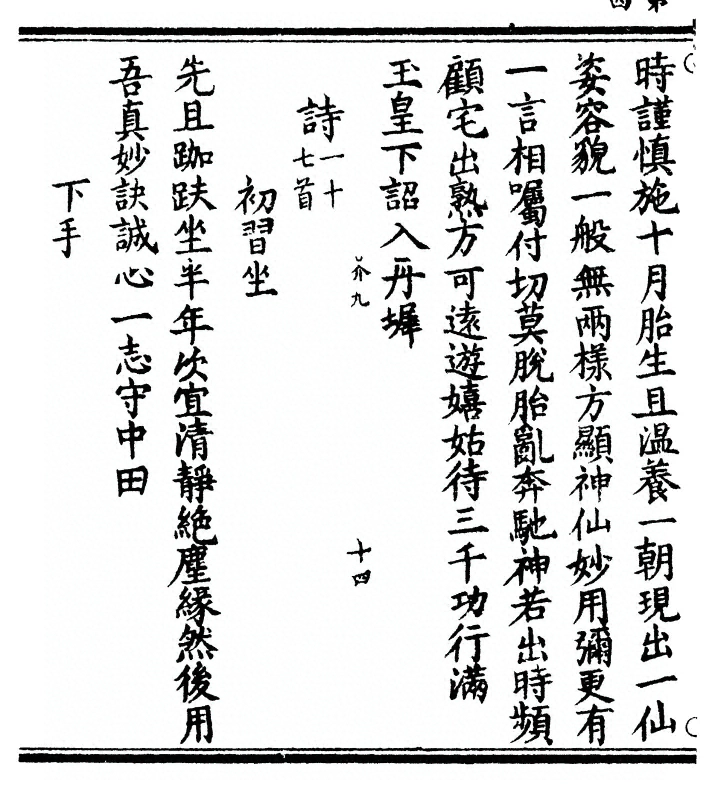 時謹慎施十月胎生且温養一朝現出一仙
姿容貌一般無兩樣方顯神仙妙用彌更有
一言相囑付切莫脫胎亂奔馳神若出時頻
顧宅出熟方可遠遊嬉姑待三千功行滿
玉皇下詔入丹墀
尒九 十四
詩一十七首
初習坐
先且跏趺坐半年次宜清靜絶塵緣然後用
吾真妙訣誠心一志守中田
下手